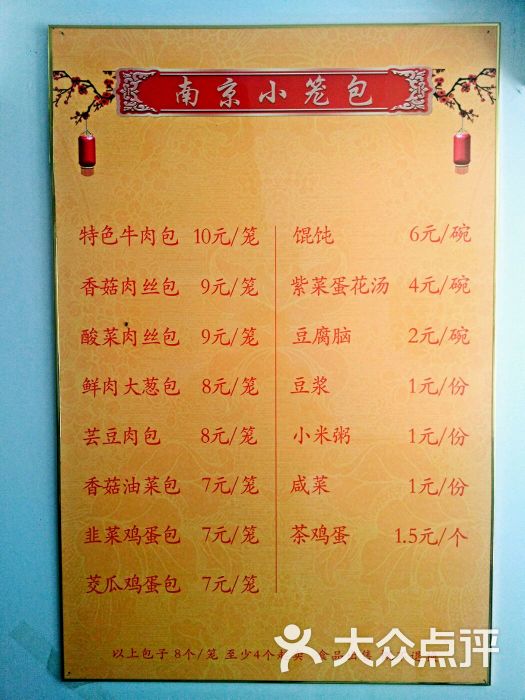 南京小笼包
特色牛肉包 10元/笼
香菇肉丝包 9元/笼
酸菜肉丝包 9元/笼
鲜肉大葱包 8元/笼
芸豆肉包 8元/笼
香菇油菜包 7元/笼
韭菜鸡蛋包 7元/笼
茭瓜鸡蛋包 7元/笼
馄饨 6元/碗
紫菜蛋花汤 4元/碗
豆腐脑 2元/碗
豆浆 1元/份
小米粥 1元/份
咸菜 1元/份
茶鸡蛋 1.5元/个
以上包子 8个/笼 至少4个起卖 食品
大众点评